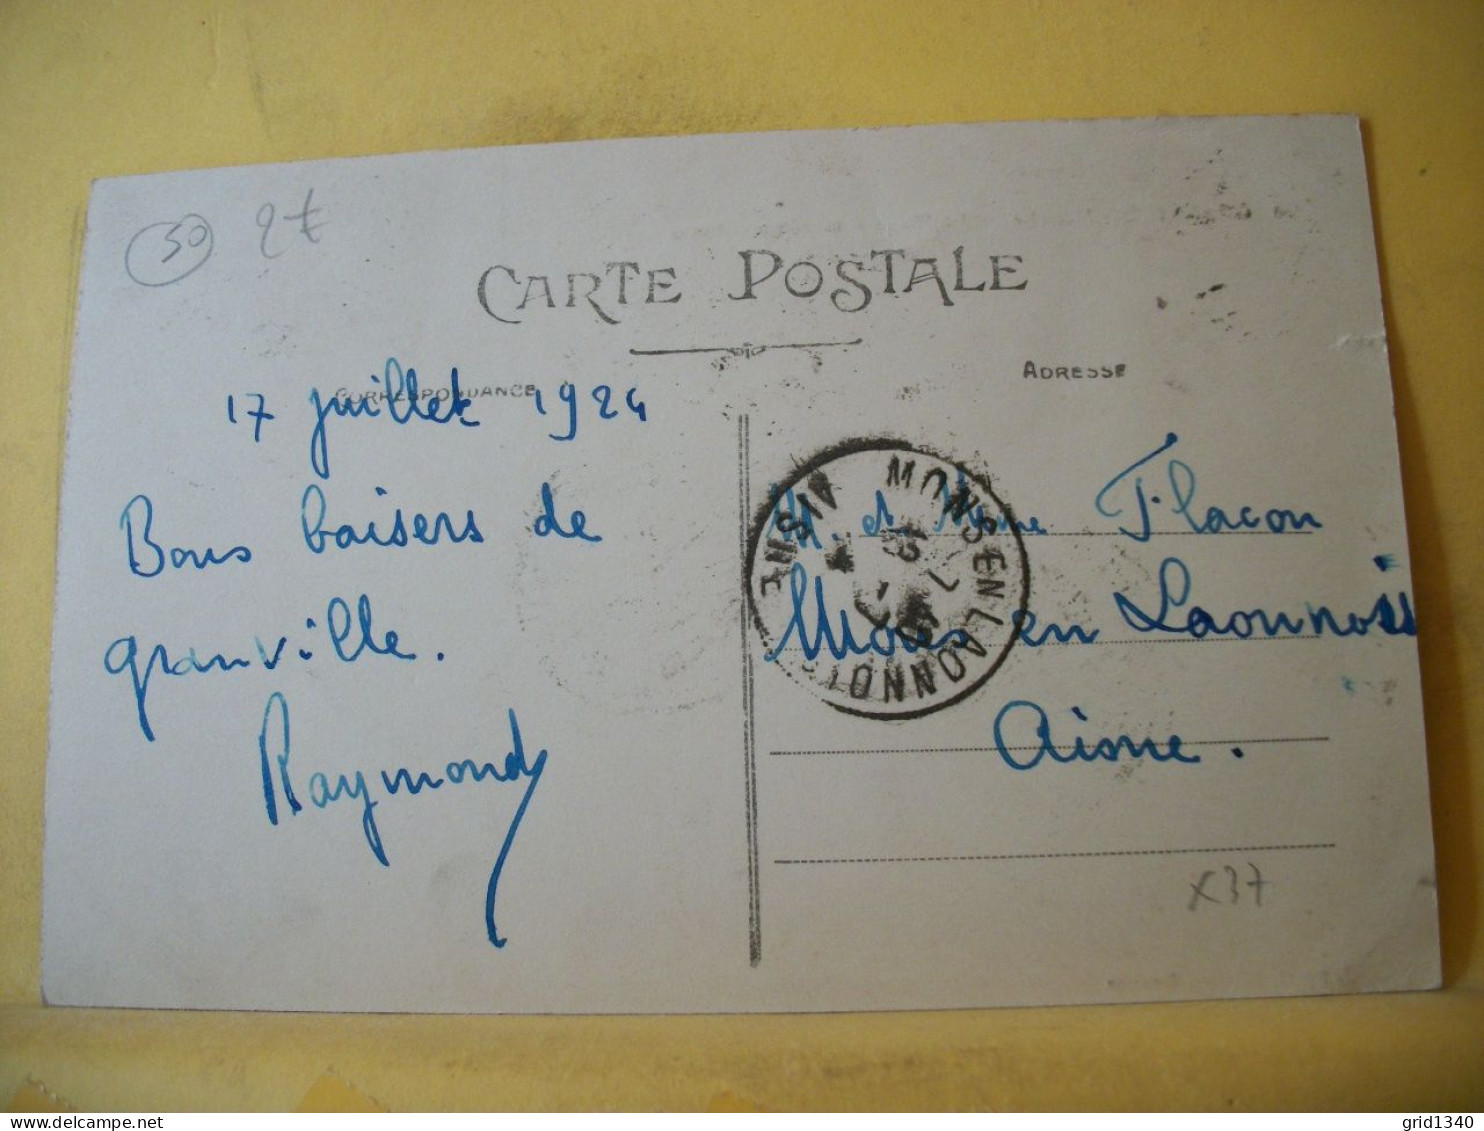 50 2€
CARTE POSTALE
CORRESPONDANCE
ADRESSE
17 juillet 1924
Bons baisers de
granville.
Raymond
M. et Mme Flacon
Mons en Laonnois
Aisne.
MONS EN LAONNOIS
AISNE
X37
grid1340